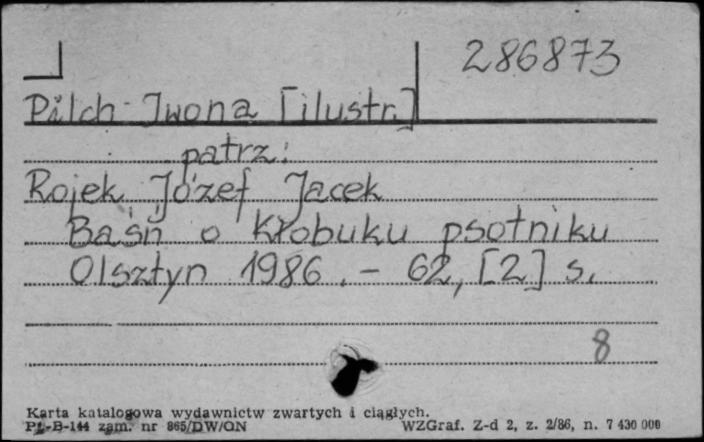 286873
Pilch Iwona [ilustr.]
patrz:
Rojek Józef Jacek
Baśń o Kłobuku psotniku
Olsztyn 1986. - 62, [2] s.
8
Karta katalogowa wydawnictw zwartych i ciągłych.
Pt-B-144 zam. nr 865/DW/ON WZGraf. Z-d 2, z. 2/86, n. 7 430 000